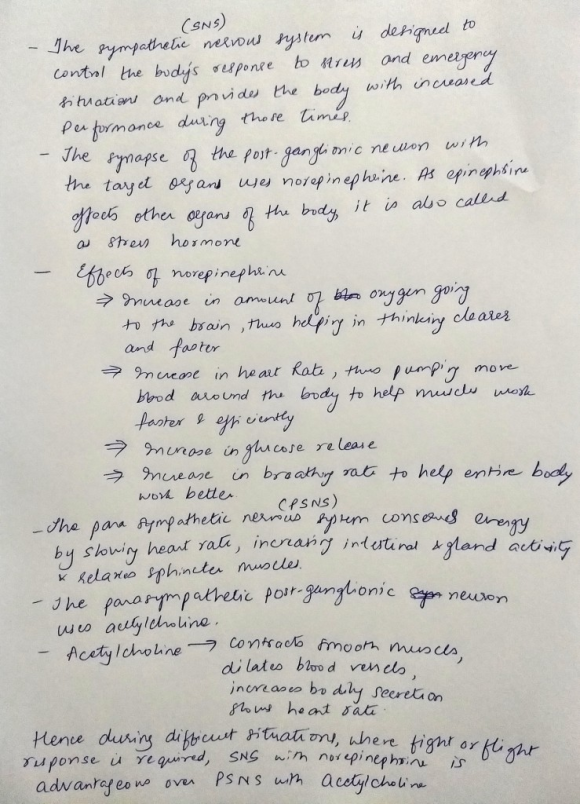 (SNS)
- The sympathetic nervous system is designed to
control the body's response to stress and emergency
situations and provides the body with increased
Performance during those times.
- The synapse of the post-ganglionic neuron with
the target organs uses norepinephrine. As epinephrine
effects other organs of the body, it is also called
as stress hormone
- Effects of norepinephrine
⇒ Increase in amount of oxygen going
to the brain, thus helping in thinking clearer
and faster
⇒ Increase in heart Rate, thus pumping more
blood around the body to help muscles work
faster & efficiently
⇒ Increase in glucose release
⇒ Increase in breathing rate to help entire body
work better
(PSNS)
- The para sympathetic nervous system conserves energy
by slowing heart rate, increasing intestinal & gland activity
& relaxes sphincter muscles.
- The parasympathetic post-ganglionic neuron
uses acetylcholine.
- Acetylcholine → contracts smooth muscles,
dilates blood vessels,
increases bodily secretion
slows heart rate.
Hence during difficult situations, where fight or flight
response is required, SNS with norepinephrine is
advantageous over PSNS with Acetylcholine